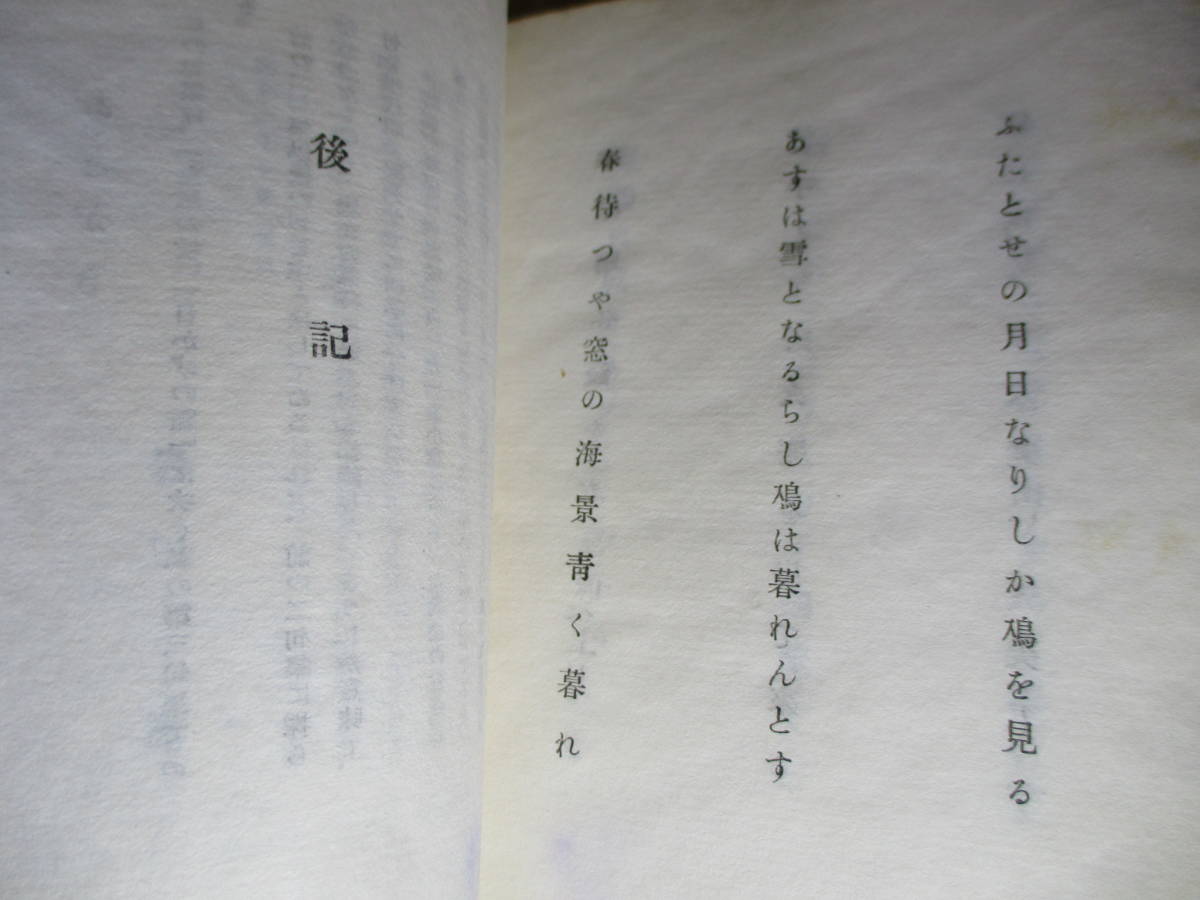 ふたとせの月日なりしかを見る
あすは雪となるらしは暮れんとす
春待つや窓の海景青く暮れ
後記